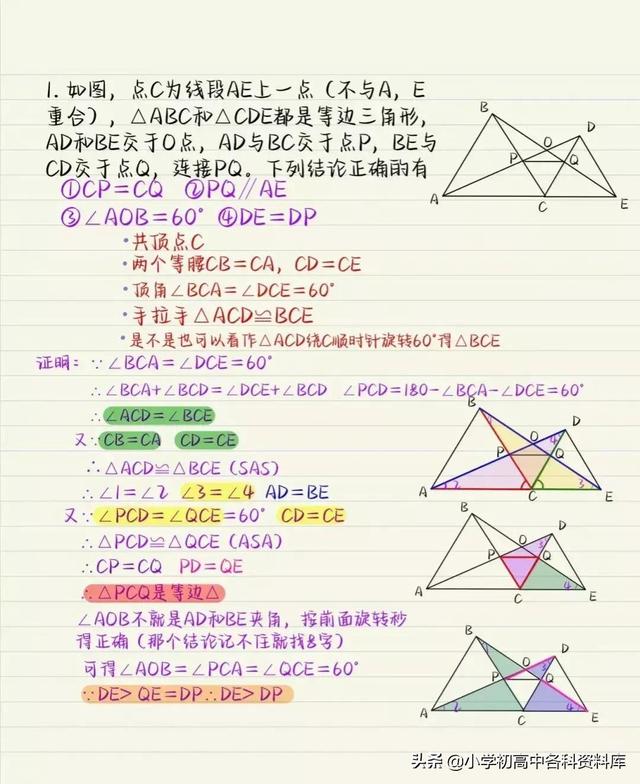 1. 如图，点C为线段AE上一点（不与A，E
重合），△ABC和△CDE都是等边三角形，
AD和BE交于O点，AD与BC交于点P，BE与
CD交于点Q，连接PQ。下列结论正确的有
①CP=CQ ②PQ∥AE
③∠AOB=60° ④DE=DP
B
D
O
P
Q
A
C
E
•共顶点C
•两个等腰CB=CA，CD=CE
•顶角∠BCA=∠DCE=60°
•手拉手△ACD≌△BCE
•是不是也可以看作△ACD绕C顺时针旋转60°得△BCE
证明：∵∠BCA=∠DCE=60°
∴∠BCA+∠BCD=∠DCE+∠BCD ∠PCD=180-∠BCA-∠DCE=60°
∴∠ACD=∠BCE
又∵CB=CA CD=CE
∴△ACD≌△BCE（SAS）
∴∠1=∠2 ∠3=∠4 AD=BE
又∵∠PCD=∠QCE=60° CD=CE
∴△PCD≌△QCE（ASA）
∴CP=CQ PD=QE
∴△PCQ是等边△
∠AOB不就是AD和BE夹角，按前面旋转秒
得正确（那个结论记不住就找8字）
可得∠AOB=∠PCA=∠QCE=60°
∵DE>QE=DP∴DE>DP
B
1
D
O
4
P
Q
A
2
C
3
E
B
D
O
3
P
Q
A
C
4
E
B
1
D
O
3
P
Q
A
2
C
4
E
头条 @小学初高中各科资料库